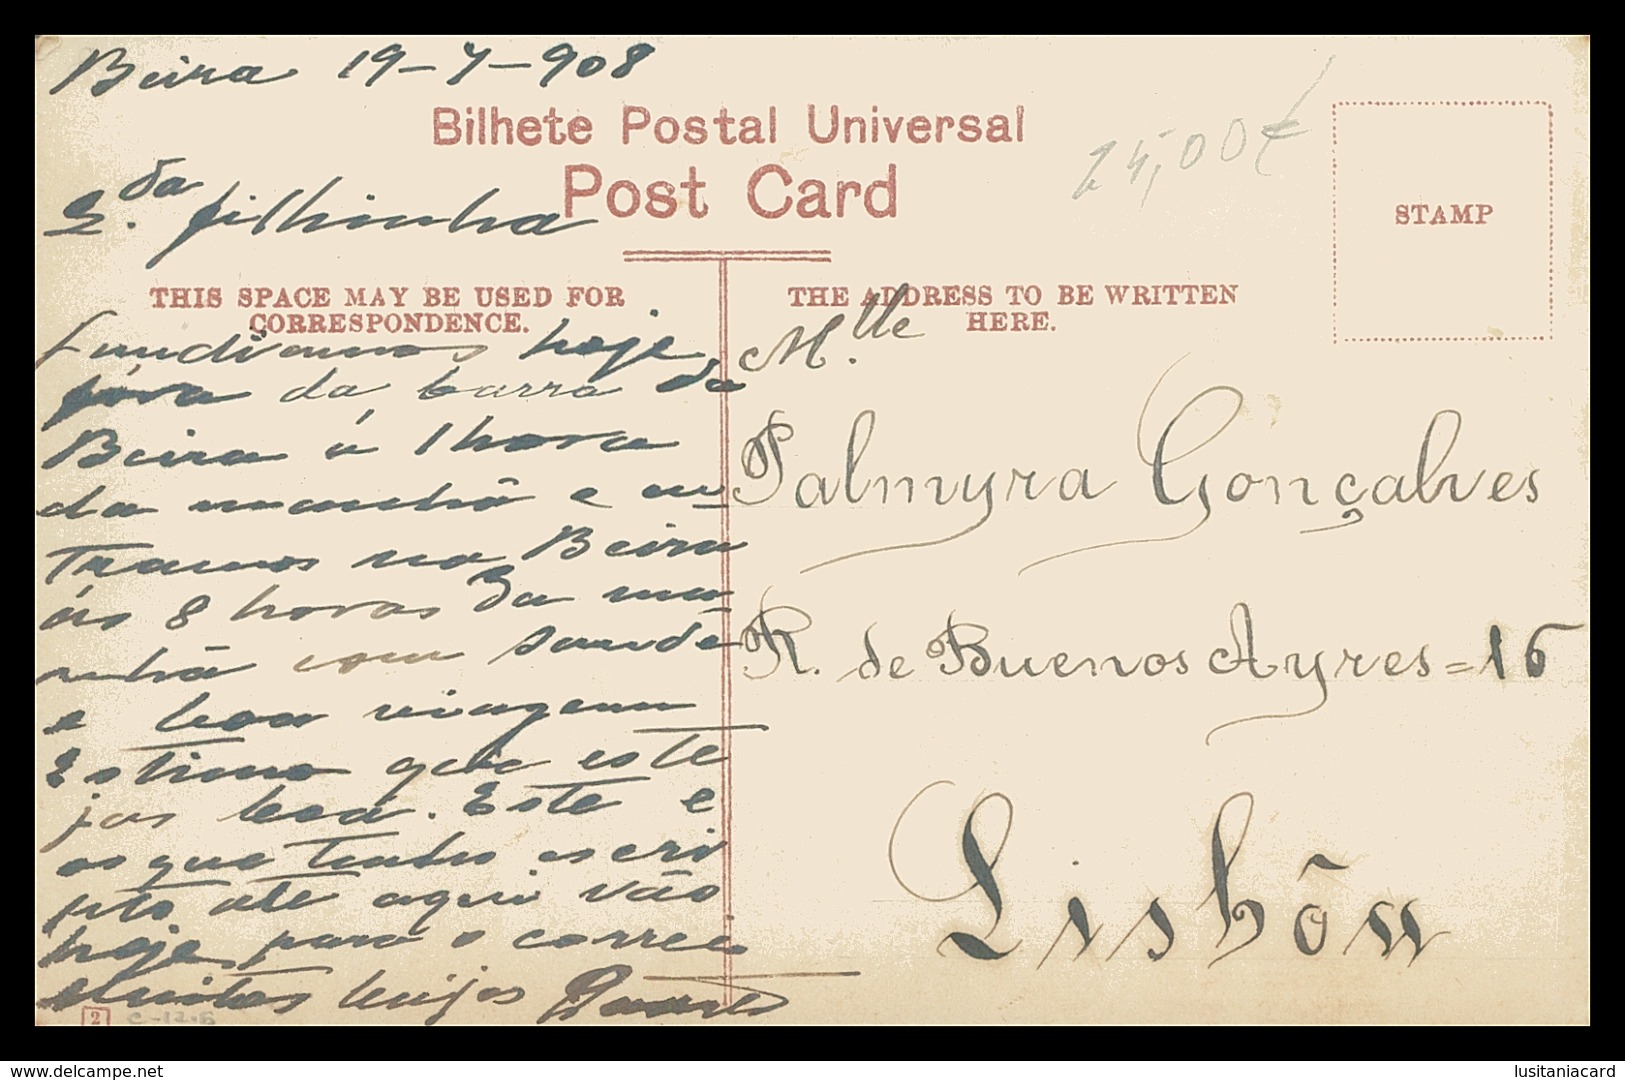 Beira 19-7-908
Bilhete Postal Universal
Post Card
25,00€
STAMP
Q.da filhinha
THIS SPACE MAY BE USED FOR
CORRESPONDENCE.
THE ADDRESS TO BE WRITTEN
HERE.
Fundiamos hoje
fóra da barra da
Beira á 1 hora
da manhã e en-
tramos na Beira
ás 8 horas da ma-
nhã com saude
e boa viagem
Estimo que este
jas boa. Este e
os que tenho escri
pto até aqui vão
hoje para o correio
Muitos beijos
M.lle
Palmyra Gonçalves
R. de Buenos Ayres = 16
Lisbôa
2
C-12.6
www.delcampe.net
lusitaniacard